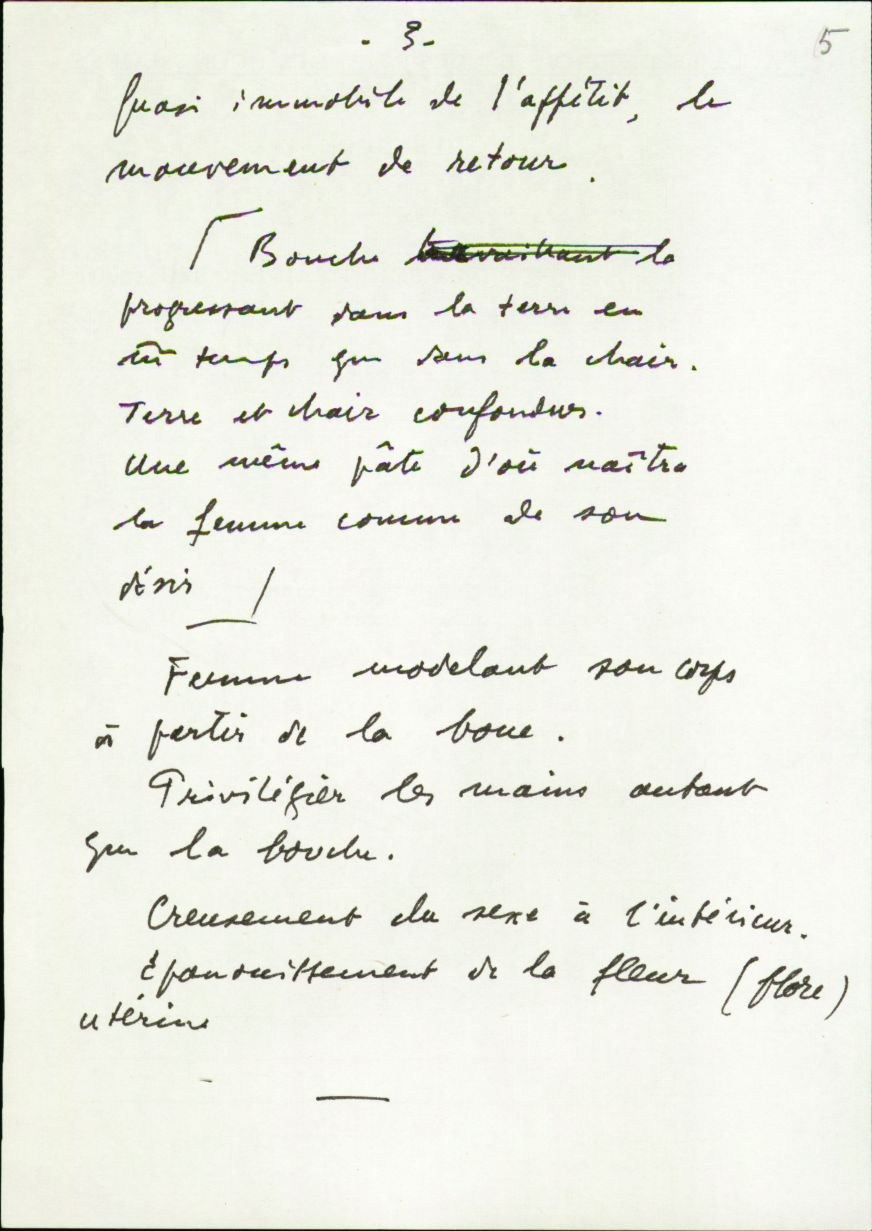 - 3 -
5
quasi immobile de l'appétit, le
mouvement de retour.
Bouche travaillant la
progressant dans la terre en
m̄ temps que dans la chair.
Terre et chair confondues.
Une même pâte d'où naîtra
la femme comme de son
désir
Femme modelant son corps
à partir de la boue.
Privilégier les mains autant
que la bouche.
Creusement du sexe à l'intérieur.
Épanouissement de la fleur (flore)
utérine